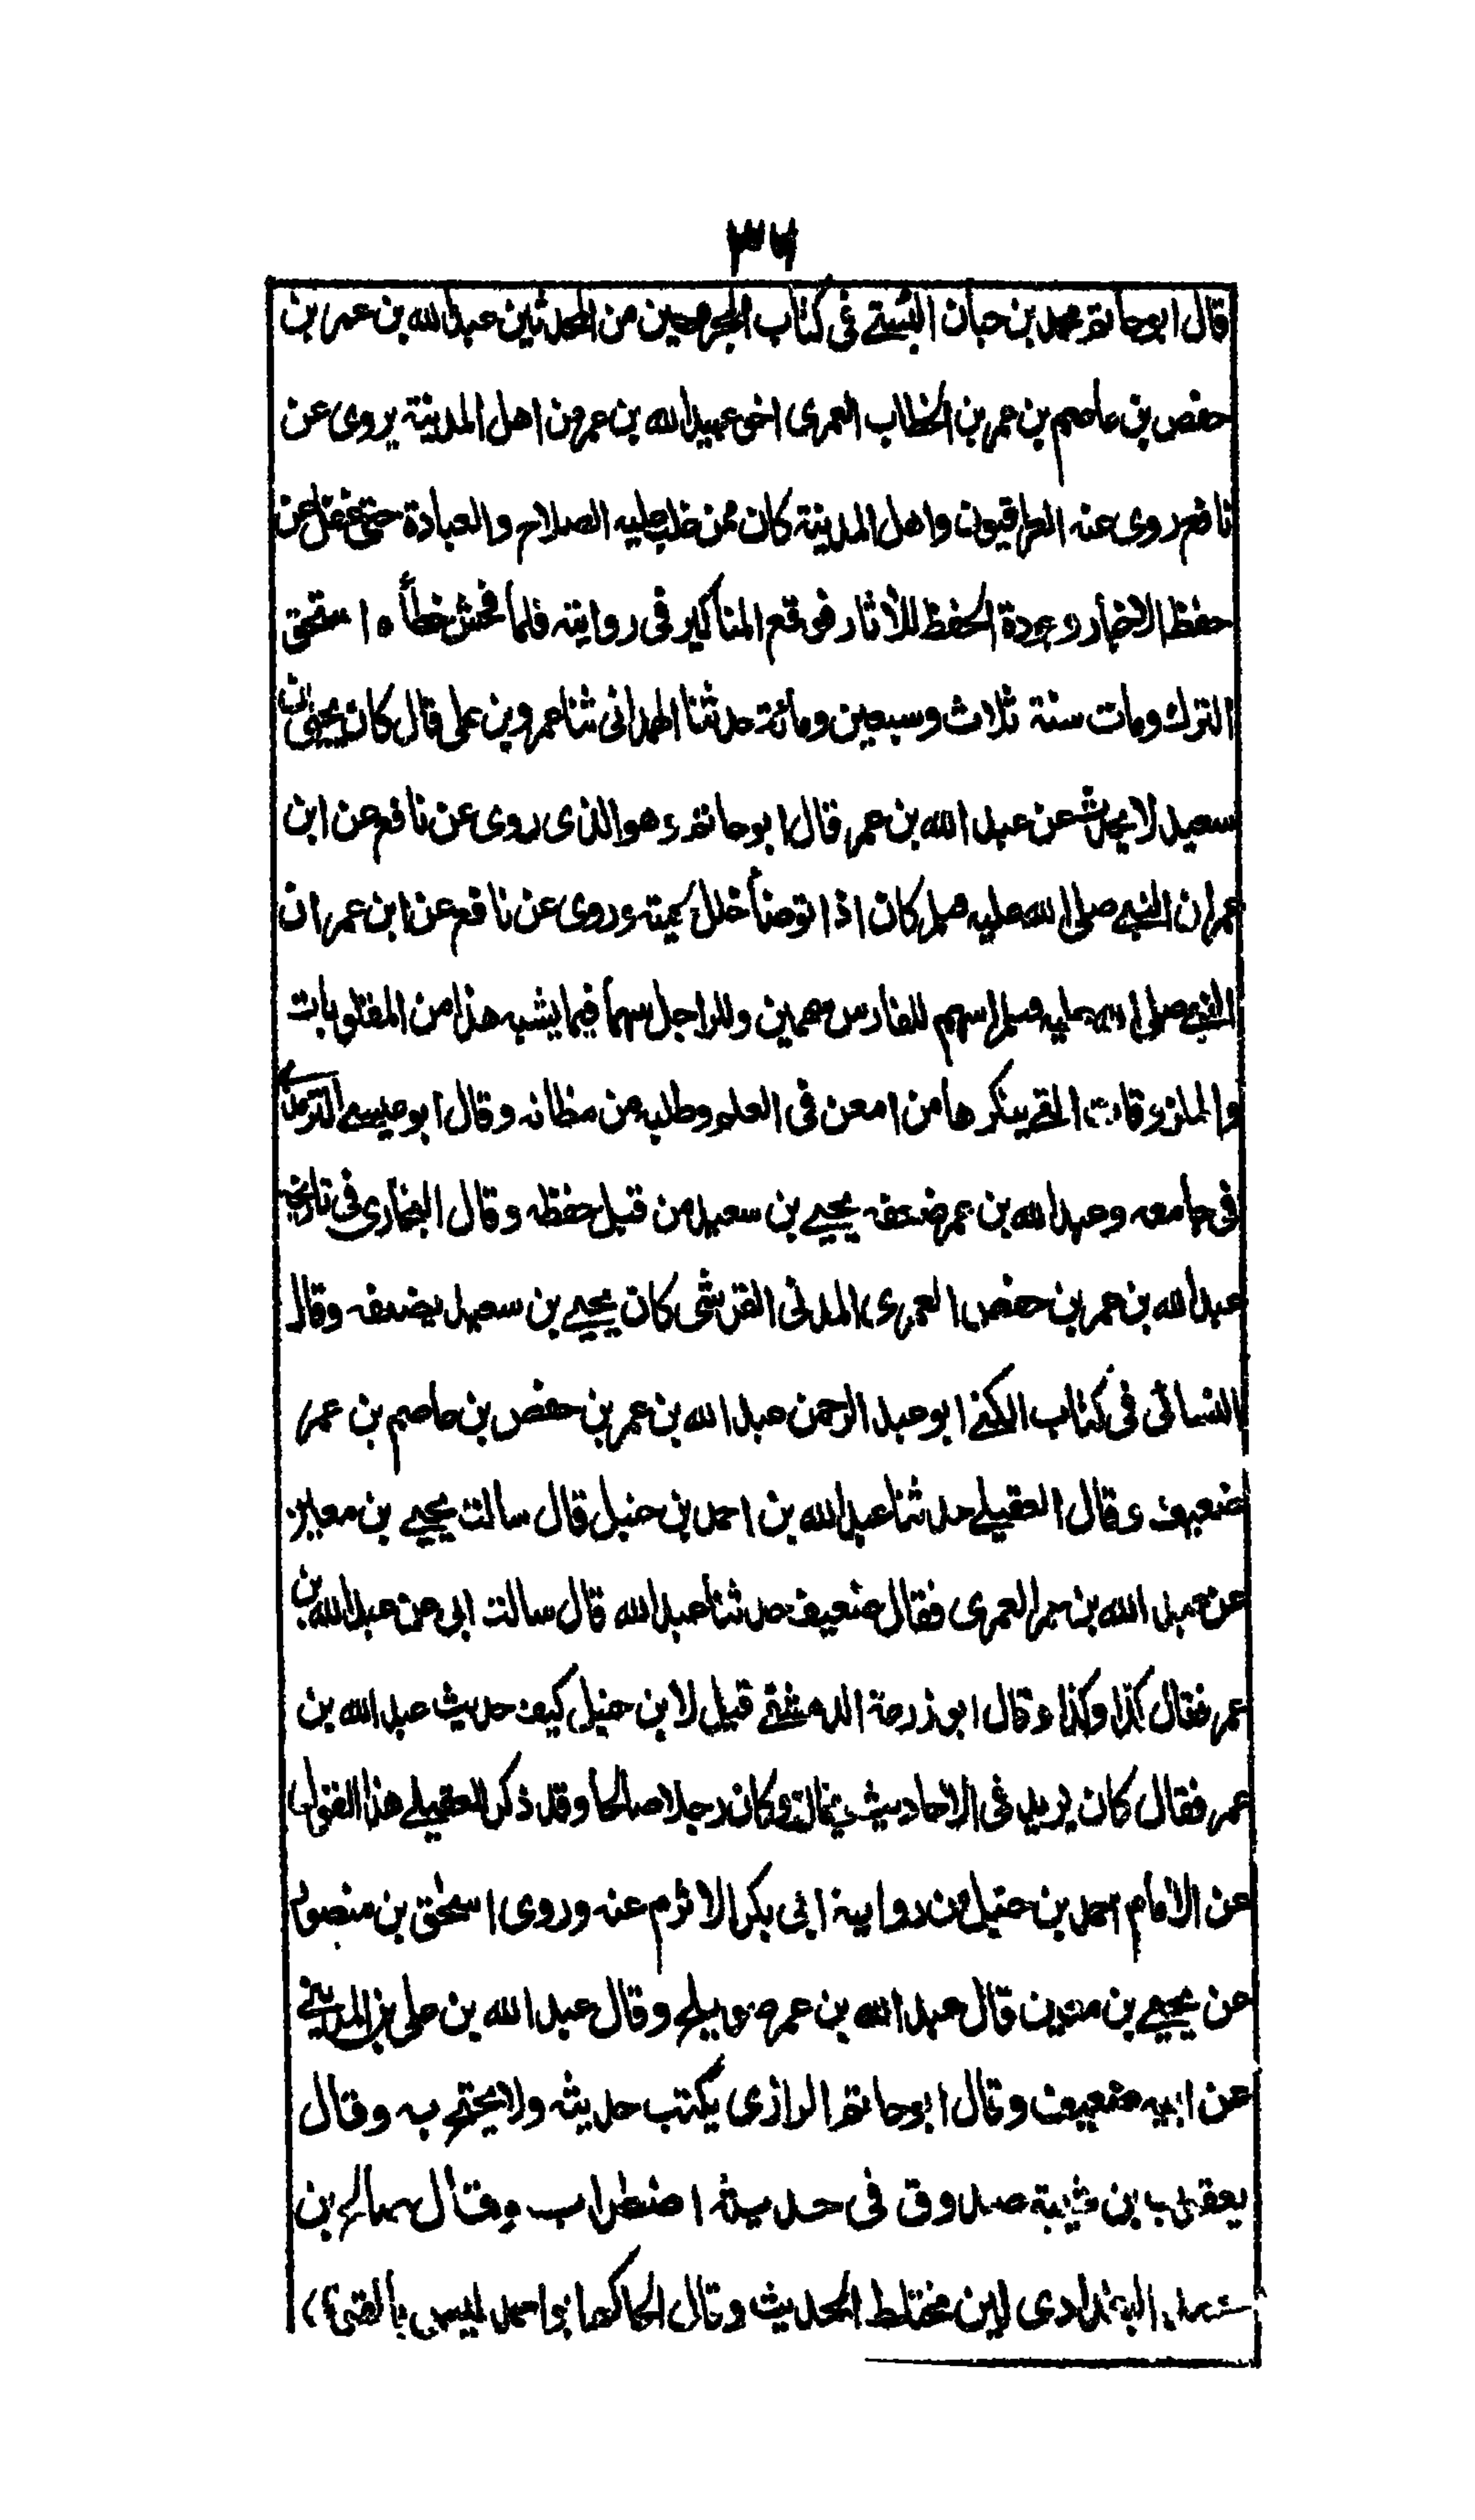 ٣٦
قال ابو حاتم محمد بن حبان البستي في كتاب المجروحين من المحدثين عبد الله بن عمر بن
حفص بن عاصم بن عمر بن الخطاب العمرى اخو عبيد الله بن عمر من اهل المدينة يروى عن
نافع روى عنه العراقيون واهل المدينة كان ممن غلب عليه الصلاح والعبادة حتى غفل عن
حفظ الاخبار وجودة الحفظ للاثار فوقع المناكير في روايته فلما فحش خطأه استحق
الترك ومات سنة ثلاث وسبعين ومائة حدثنا الهمدانى ثنا عمرو بن على قال كان يحيى بن
سعيد لا يحدث عن عبد الله بن عمر قال ابو حاتم وهو الذى روى عن نافع عن ابن
عمر ان النبي صلى الله عليه وسلم كان اذا توضأ خلل لحيته وروى عن نافع عن ابن عمر ان
النبي صلى الله عليه وسلم اسهم للفارس سهمين وللراجل سهما فيما يشبه هذا من المقلوبات
والملزوقات التي ينكرها من امعن في العلم وطلبه من مظانه وقال ابو عيسى الترمذى
فى جامعه وعبد الله بن عمر ضعفه يحيى بن سعيد من قبل حفظه وقال البخارى فى تاريخه
عبد الله بن عمر بن حفص العمرى المدنى القرشى كان يحيى بن سعيد يضعفه وقال
النسائى فى كتاب الكنى ابو عبد الرحمن عبد الله بن عمر بن حفص بن عاصم بن عمر
ضعيف وقال العقيلى حدثنا عبد الله بن احمد بن حنبل قال سالت يحيى بن معين
عن عبد الله بن عمر العمرى فقال ضعيف حدثنا عبد الله قال سالت ابى عن عبد الله بن
عمر فقال كذا وكذا وقال ابو زرعة الدمشقى قيل لابن حنبل كيف حديث عبد الله بن
عمر فقال كان يزيد فى الاحاديث ويخالف وكان رجلا صالحا وقد ذكر العقيلى هذا القول
عن الامام احمد بن حنبل من رواية ابى بكر الاثرم عنه وروى اسحٰق بن منصور
عن يحيى بن معين قال عبد الله بن عمر صويلح وقال عبد الله بن على بن المدينى
عن ابيه ضعيف وقال ابو حاتم الرازى يكتب حديثه ولا يحتج به وقال
يعقوب بن شيبة صدوق فى حديثه اضطراب وقال صالح بن
محمد البغدادى لين مختلط الحديث وقال الحاكم ابو احمد ليس بالقوى